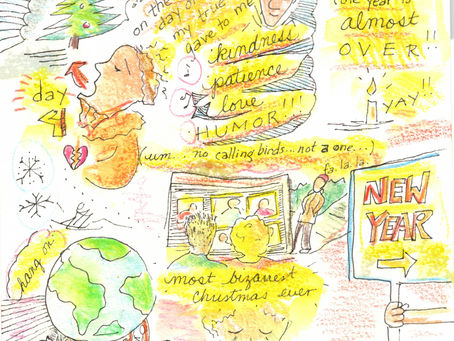 on the
day of
my true
gave to me
kindness
patience
love
HUMOR!!!
(um.. no calling birds...not a one...)
day
year is
almost
OVER!!
YAY!!
fa.la.la..
NEW
YEAR
hang on
most bizarrest
Christmas ever